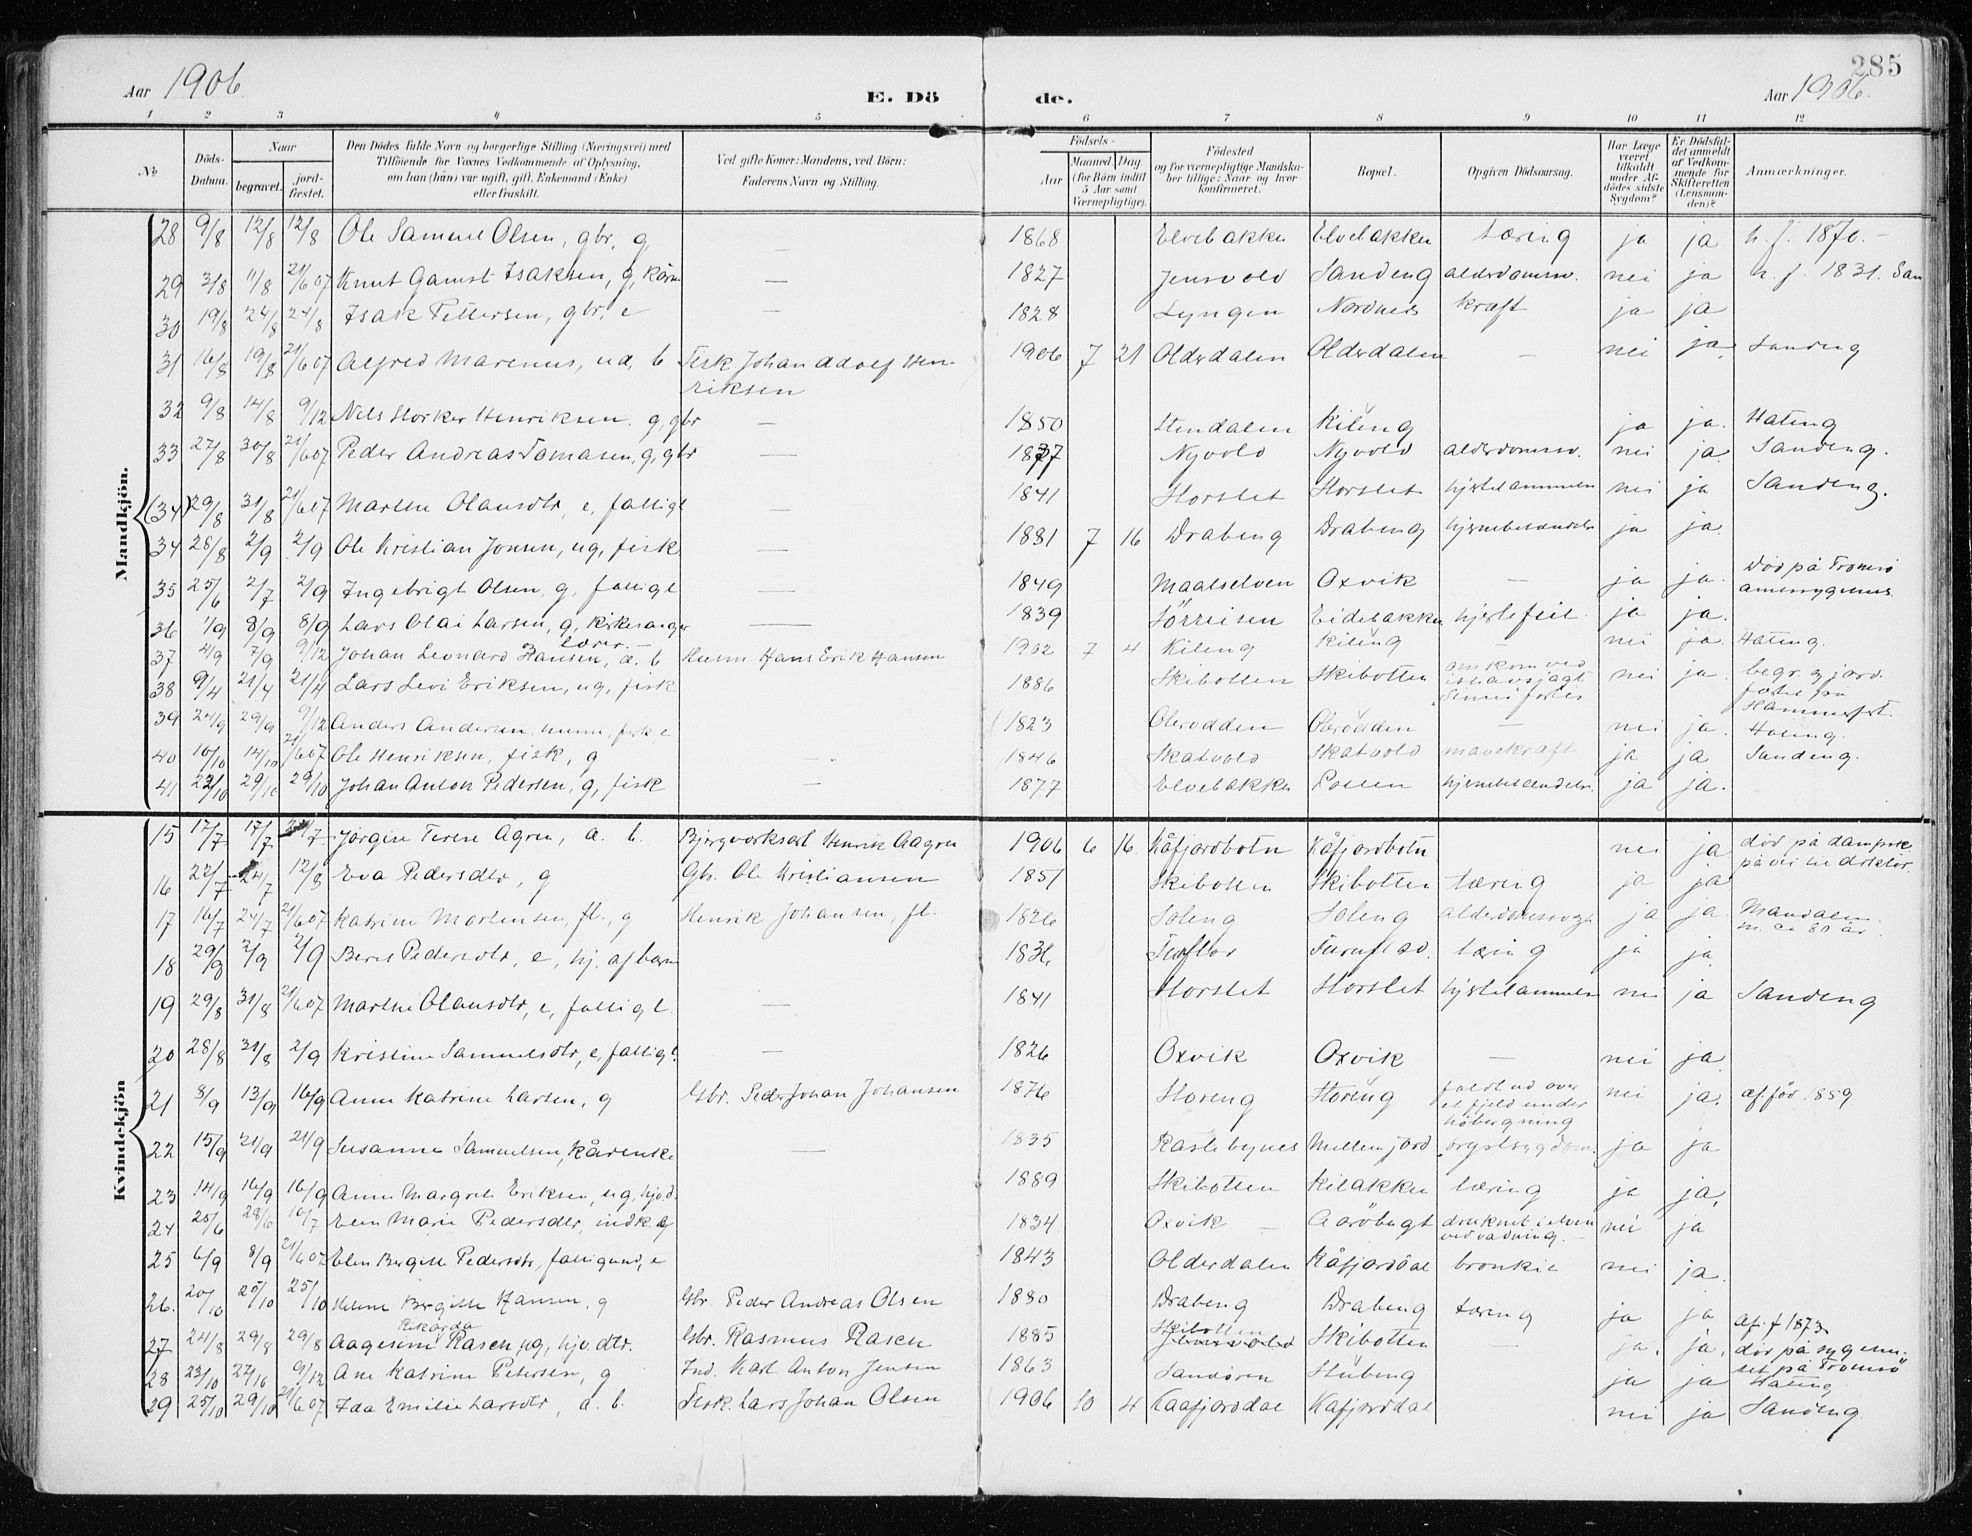 285
Aar 1906. E. Dö de. Aar 1906.
1 2 3 4 5 6 7 8 9 10 11 12
No Döds-Datum. Naar begravet. jordfæstet. Den Dödes fulde Navn og borgerlige Stilling (Næringsvei) med Tilföiende for Voxnes Vedkommende af Oplysning, om han (hun) var ugift, gift, Enkemand (Enke) eller fraskilt. Ved gifte Koner: Mandens, ved Börn: Faderens Navn og Stilling. Födsels- Aar Maaned Dag (for Börn indtil 5 Aar samt Værnepligtige). Födested og for værnepligtige Mandskaber tillige: Naar og hvor konfirmeret. Bopæl. Opgiven Dödsaarsag. Har Læge været tilkaldt under Afdödes sidste Sygdom? Er Dödsfaldet anmeldt af Vedkommende for Skifteretten (Lensmanden)? Anmærkninger.
Mandkjön.
28 9/8 12/8 12/8 Ole Samuel Olsen, gbr, g — 1868 Elvebakken Elvebakken tæring ja ja. n. f. 1870. —
29 3/8 11/8 21/6 07 Knut Gamst Isaksen, g, kårm — 1827 Jensvold Sandeng alderdomssv. nei ja n. f. 1831. San
30 19/8 24/8 24/8 Isak Pettersen, gbr, e — 1828 Lyngen Nordnes kræft ja ja
31 16/8 19/8 21/6 07 Alfred Marenus, b Fisk Johan Adolf Hen- 1906 7 21 Olderdalen Olderdalen — nei ja. Sandeng
riksen
32 9/8 14/8 9/12 Nils Storker Henriksen g, gbr — 1850 Stendalen Kileng ja ja. Hateng
33 27/8 30/8 21/6 07 Peder Andreas Tomasen, g, gbr — 1837 Nyvold Nyvold alderdomssv. nei ja. Sandeng.
(34) 29/8 31/8 21/6 07 Marthe Olausdtr, e, fattigl — 1841 Horslet Horslet nei ja Sandeng.
34 28/8 2/9 2/9 Ole Kristian Jonsen, ug, fisk — 1881 7 16 Drabeng Drabeng hjernebetændelse ja ja.
35 25/6 2/7 2/9 Ingebrigt Olsen, g, fattigl — 1849 Maalselven Oxvik — ja ja. död på Tromsö
amtssygehus.
36 1/9 8/9 8/9 Lars Olai Larsen, g, kirkesanger — 1839 Sörreisen Eidebakken hjertefeil ja ja.
lærer. —
37 4/9 7/9 9/12 Johan Leonard Hansen, æ. b Husm Hans Erik Hansen 1902 7 4 Kileng Kileng — nei ja. Hateng.
38 9/4 21/4 21/4 Lars Levi Eriksen, ug, fisk 1886 Skibotten Skibotten omkom ved ishavsjagt nei ja. begr. og jord.
fæstet fra
Hammerfest.
39 24/9 29/9 9/12 Anders Andersen, husm, fisk, e 1823 Olsrodden — nei ja. Hateng.
40 10/10 14/10 21/6 07 Ole Henriksen, fisk, g — 1846 Skatvold Skatvold mavekræft ja ja Sandeng.
41 22/10 29/10 29/10 Johan Anton Pedersen, g, fisk — 1877 Elvebakken hjernebetændelse ja ja.
Kvindekjön
15 17/7 17/7 Jørgine Terese Agren, æ. b. Henrik Aagren 1906 6 16. Kåfjordbotn Kåfjordbotn nei ja död på dampsk.
på vei til doktor.
16 22/7 24/7 12/8 Eva Pedersdtr, g Gbr. Ole Kristiansen 1851 Skibotten Skibotten tæring ja ja
17 16/7 24/7 21/6 07 Katrine Mortensen, fl, g Henrik Johansen, fl. 1826 Soleng Soleng ja ja Mandalen
m. ca 80 år
18 29/8 2/9 2/9 Berit Pedersdtr, e, hj. af børn Furuflad. tæring ja ja.
19 29/8 31/8 21/6 07 Marthe Olausdtr, e, fattigl. — 1841 Horslet Horslet nei ja Sandeng
20 28/8 31/8 2/9 Kristine Samuelsdtr, e, fattigl. — 1826 Oxvik Oxvik — nei ja
21 8/9 13/9 16/9 Anne Katrine Larsen, g Gbr. Peder Johan Johansen 1876 Storeng Storeng faldt ud over et fjeld under höbergning nei ja. af. föd. 1859
22 15/9 21/9 21/9 Susanne Samuelsen, kårenke — 1835 Rastebynes Mellemjord brystsygdom ja ja
23 14/9 16/9 16/9 Anne Margret Eriksen, ug, hjv.d. 1889 Skibotten Kilakken tæring ja ja.
24 25/6 28/6 10/7 Elen Marie Pedersdtr, 1834 Oxvik — Aaröbugt druknet i elven ved vadning. — nei ja
25 6/9 8/9 21/6 07 Elen Bergitte Pedersdtr, e 1843 Olderdalen Kåfjorddal bronkit nei ja.
26. 20/10 25/10 25/10 Helene Bergitte Hansen, g Gbr. Peder Andreas Olsen 1880 Drabeng Drabeng tæring ja ja
Rikarda
27 24/8 29/8 29/8 Aagesine Rasch, ug, hjv. dtr. Gbr. Rasmus Rasch 1885 Skibotten Jensvold Skibotten — ja. ja. af. f 1873
död på sygehu-
set på Tromsö
28 23/10 27/10 9/12 Ane Katrine Petersen, g Ind. Karl Anton Jensen 1863 Sandören Stubeng ja ja Hateng
29 25/10 29/10 21/6 07 Ida Emilie Larsdtr, æ. b. Fisk. Lars Johan Olsen 1906 10 4 Kaafjorddal Kafjorddal nei ja Sandeng.